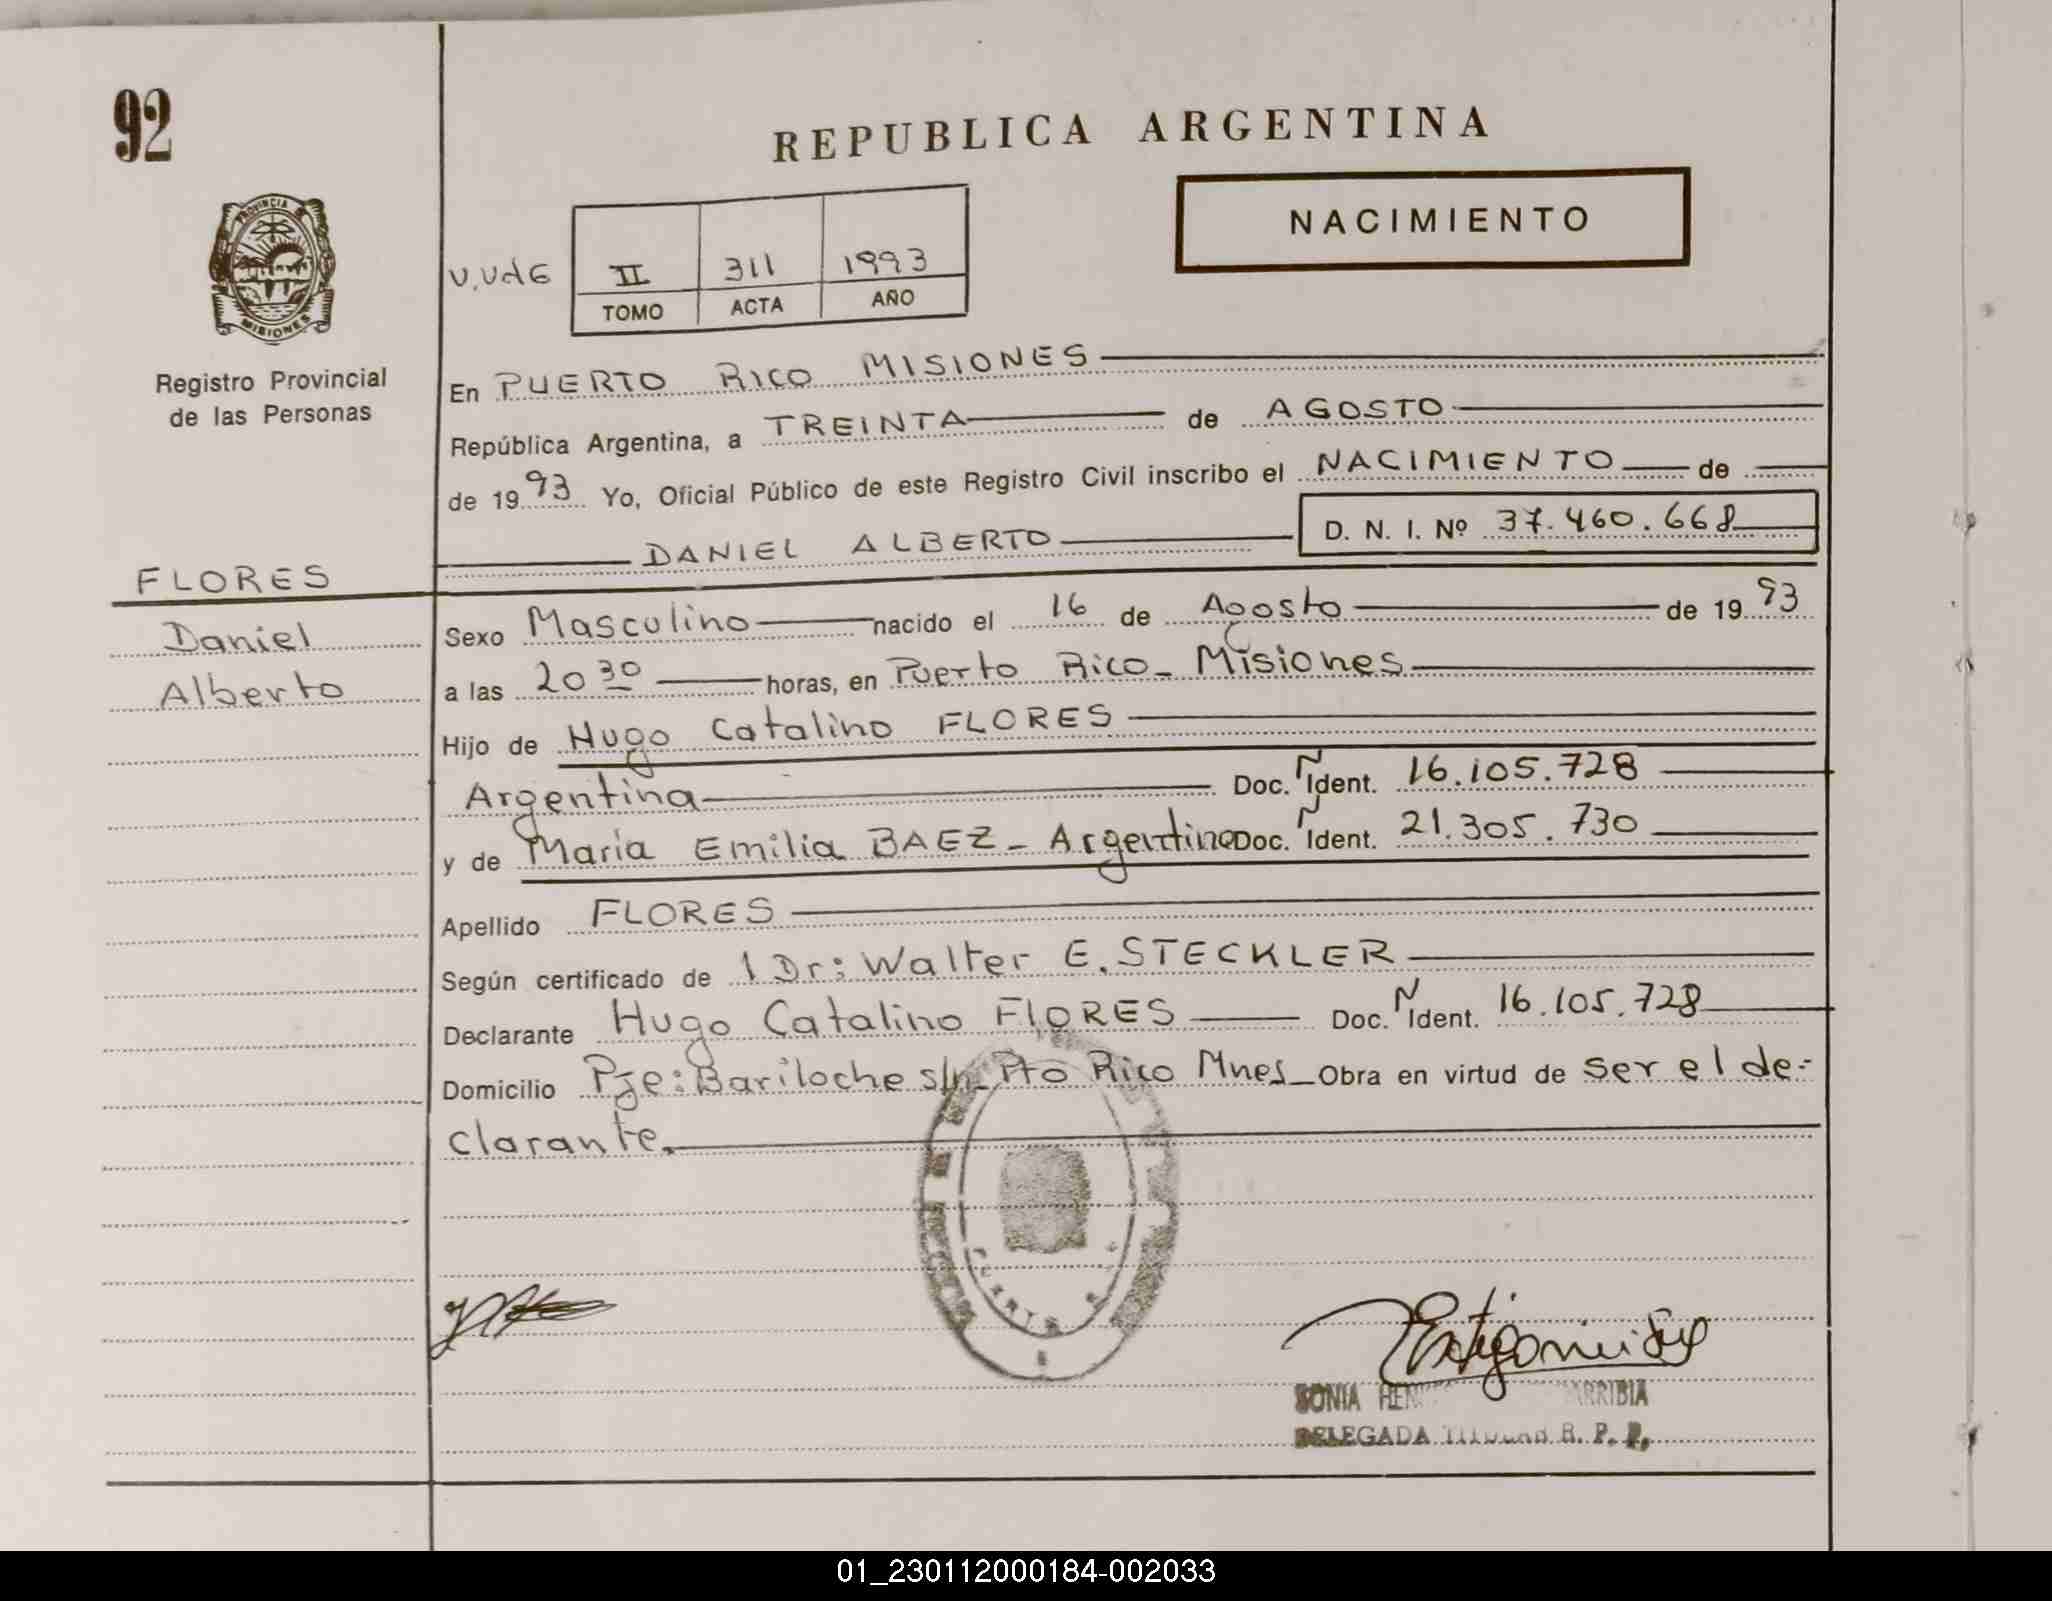 92
REPUBLICA ARGENTINA
NACIMIENTO
PROVINCIA DE
MISIONES
Registro Provincial
de las Personas
II 311 1993
TOMO ACTA AÑO
En PUERTO RICO MISIONES
República Argentina, a TREINTA de AGOSTO
de 1993 Yo, Oficial Público de este Registro Civil inscribo el NACIMIENTO de
DANIEL ALBERTO D. N. I. Nº 37.460.668
FLORES
Daniel
Alberto
Sexo Masculino nacido el 16 de Agosto de 1993
a las 20 30 horas, en Puerto Rico - Misiones
Hijo de Hugo Catalino FLORES
Argentina Doc. N Ident. 16.105.728
y de María Emilia BAEZ - Argentina Doc. N Ident. 21.305.730
Apellido FLORES
Según certificado de 1 Dr: Walter E. STECKLER
Declarante Hugo Catalino FLORES Doc. N Ident. 16.105.728
Domicilio Pje: Bariloche s/n - Pto Rico Mnes - Obra en virtud de ser el de-
clarante.
PUERTO
SONIA
DELEGADA TITULAR R. P. P.
01_230112000184-002033